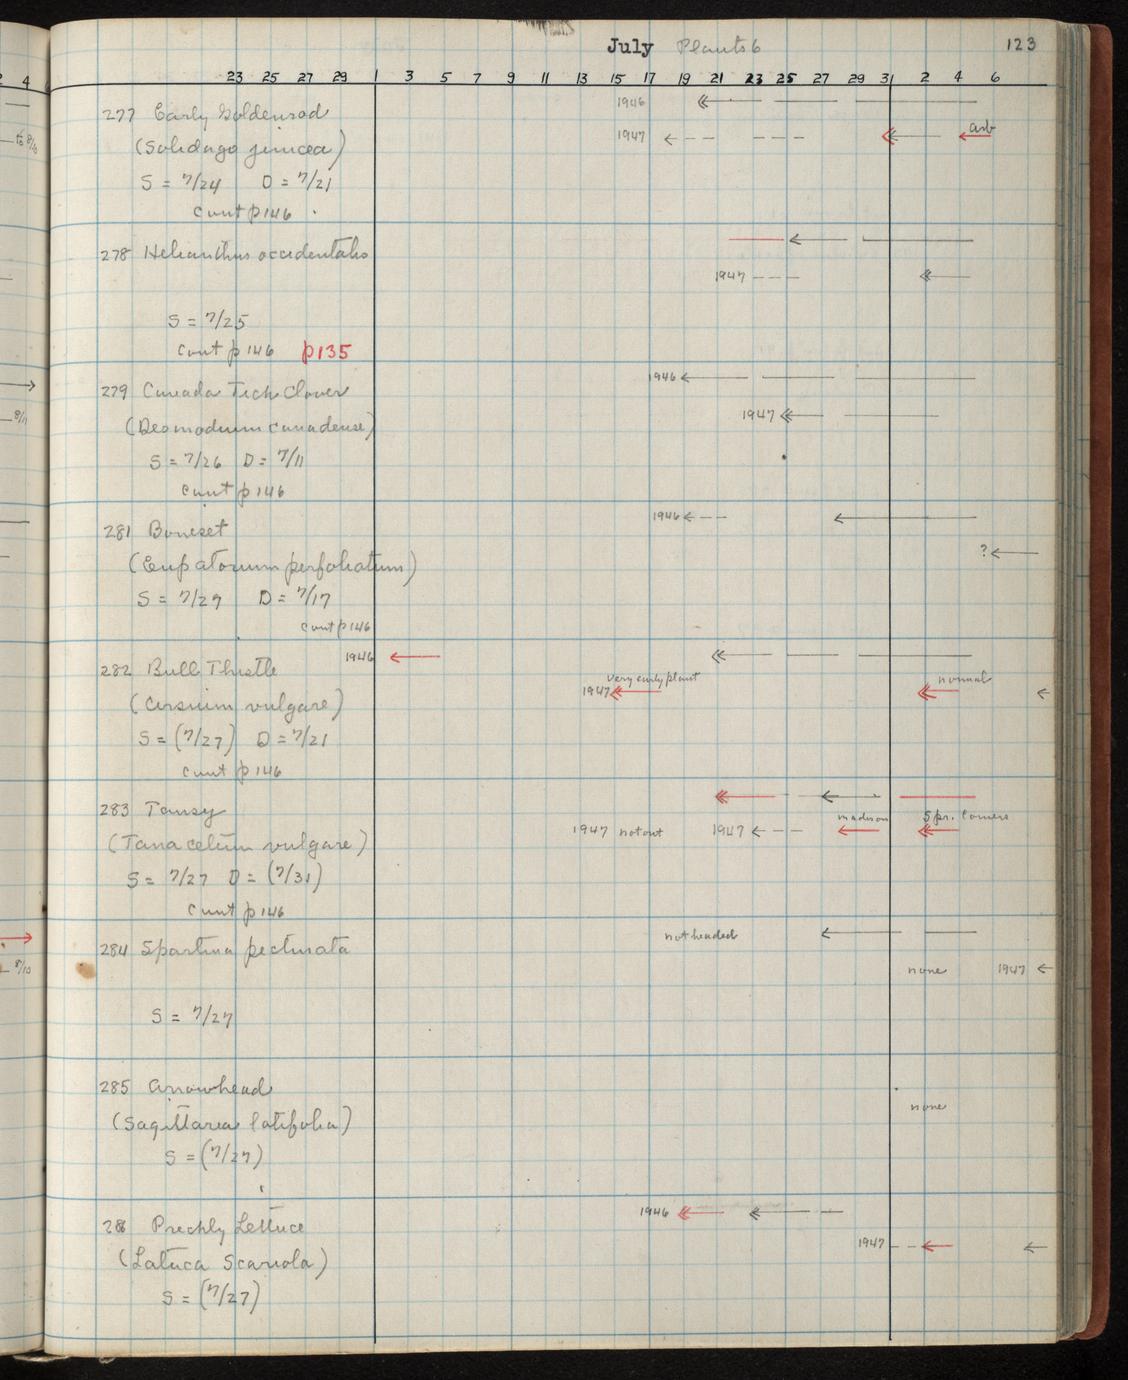 July Plants 6 123
4 23 25 27 29 1 3 5 7 9 11 13 15 17 19 21 23 25 27 29 31 2 4 6
277 Early Goldenrod 1946
(Solidago juncea) 1947 arb
to 8/10
S = 7/24 D = 7/21
cont p 146
278 Helianthus occidentalis
1947
S = 7/25
cont p 146 p135
279 Canada Tick Clover 1946
8/11
(Desmodium canadense) 1947
S = 7/26 D = 7/11
cont p 146
281 Boneset 1946
(Eupatorium perfoliatum) ?
S = 7/29 D = 7/17
cont p 146
282 Bull Thistle 1946
very early plant normal
(Cirsium vulgare) 1947
S = (7/27) D = 7/21
cont p 146
283 Tansy
madison Spr. Corners
(Tanacetum vulgare) 1947 not out 1947
S = 7/27 D = (7/31)
cont p 146
284 Spartina pectinata not headed
8/10
none 1947
S = 7/27
285 Arrowhead
none
(Sagittaria latifolia)
S = (7/27)
286 Prickly Lettuce 1946
(Latuca Scariola) 1947
S = (7/27)